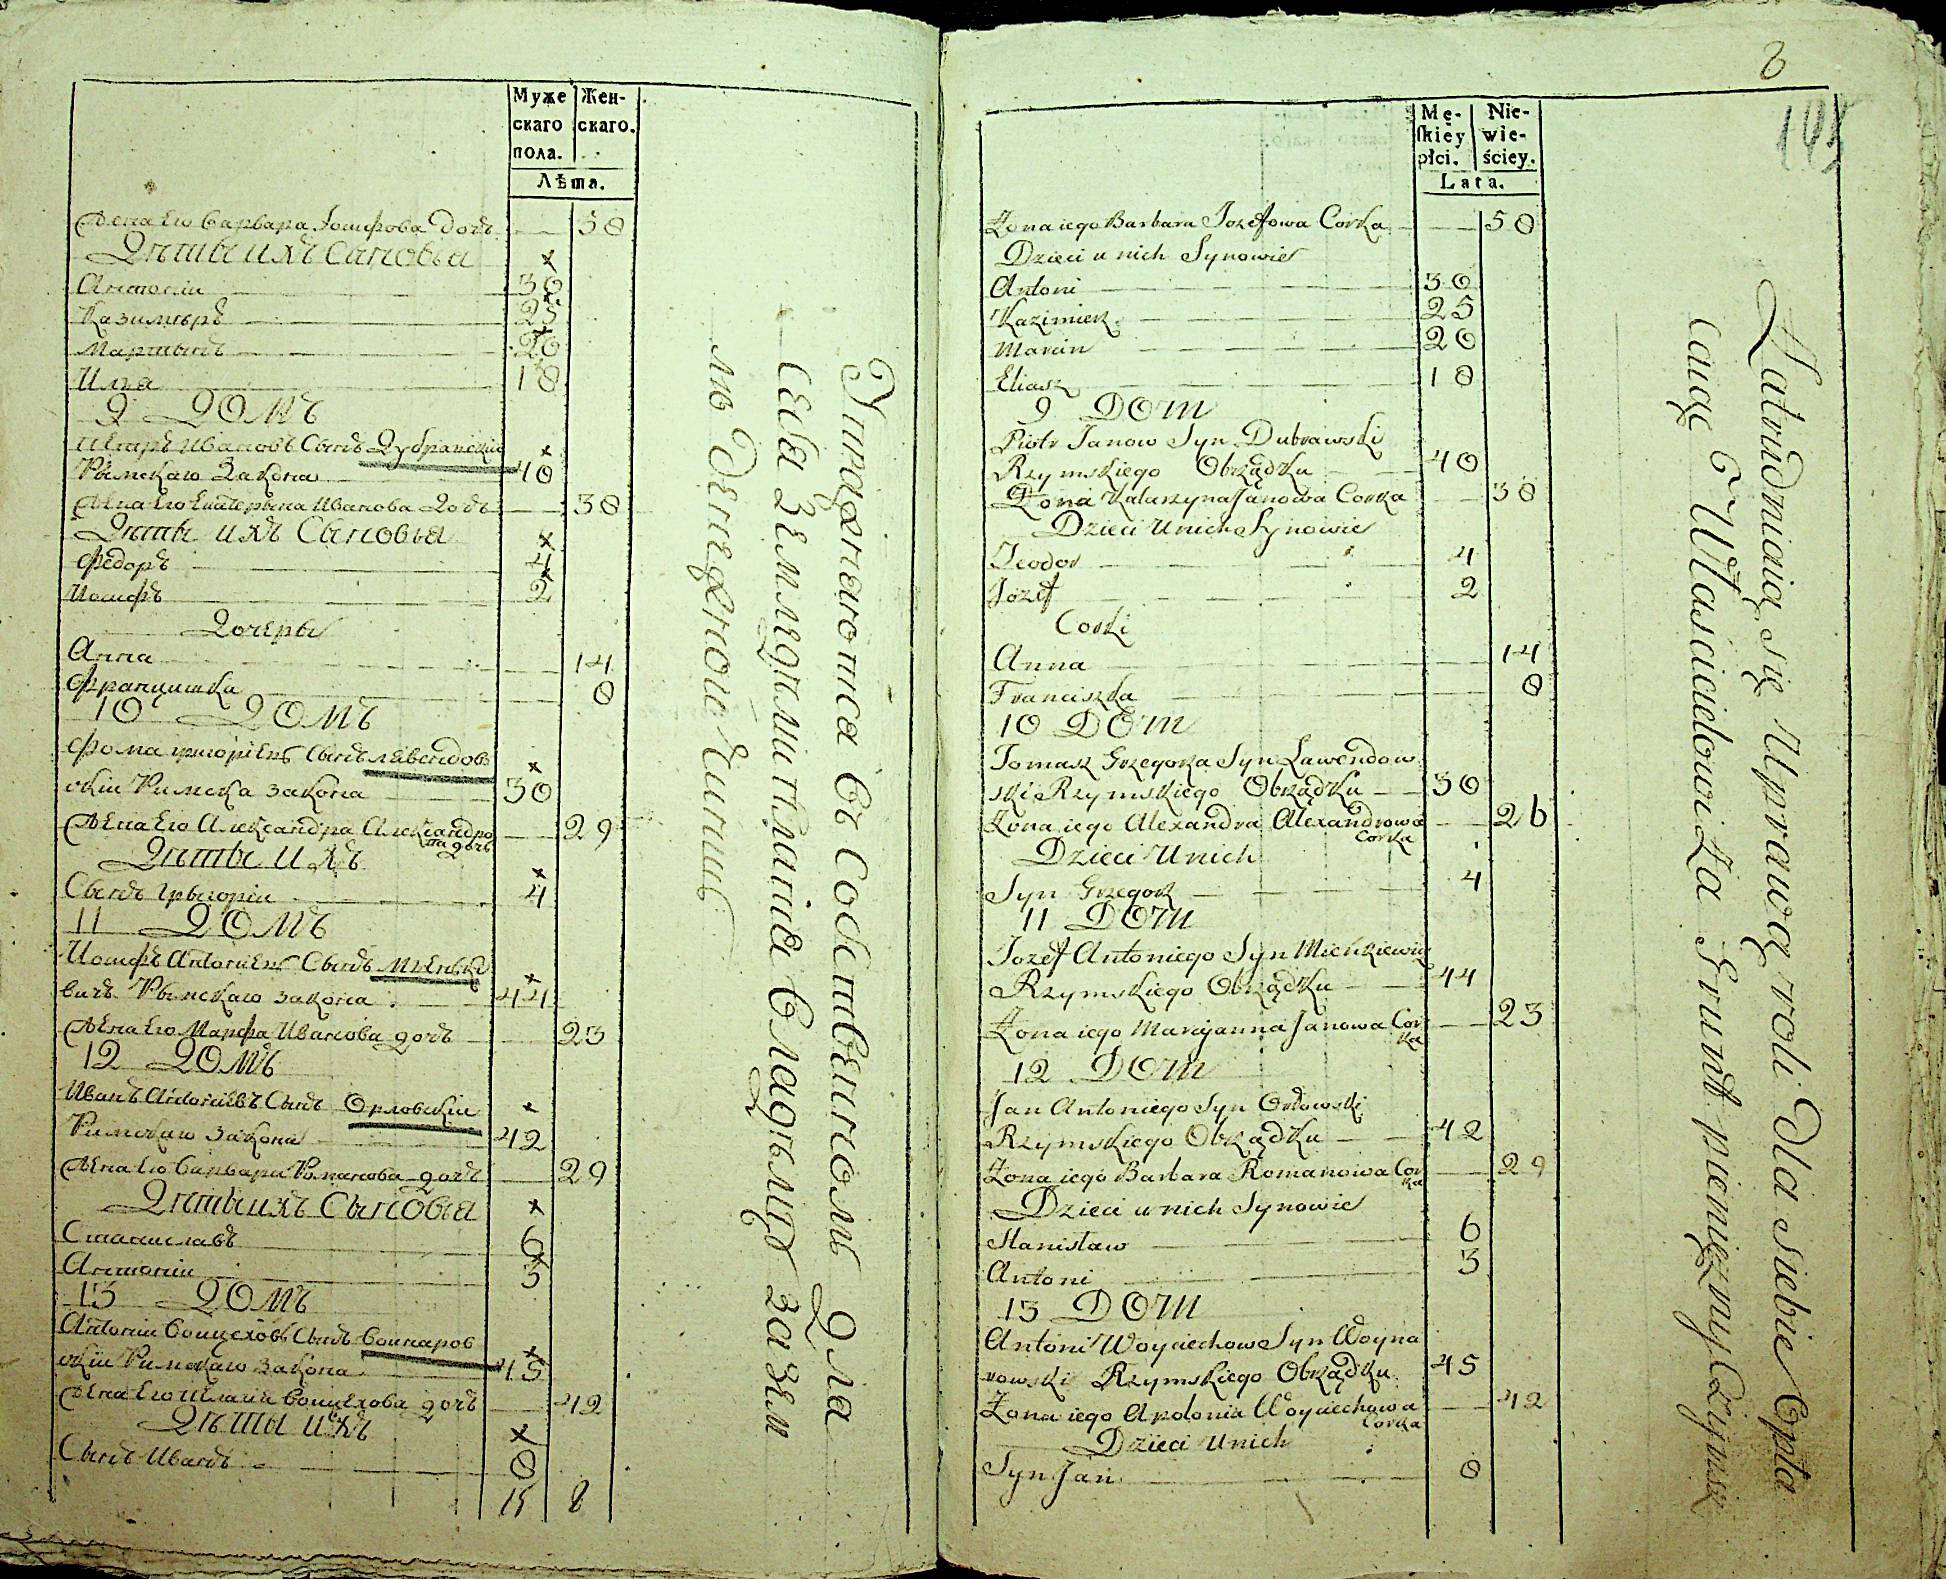 Муже
скаго
пола.
Жен-
скаго.
Лѣта.
Жена Его Варвара Іосифова дочь 58
Дѣти ихъ Сыновья
Антоній 30
Казимѣръ 25
Мартынъ 20
Илья 18
9 ДОМЪ
Петръ Ивановъ Сынъ Дубравскій
Рымскаго Закона 40
Жена Его Екатерына Иванова Дочь 38
Дѣти ихъ Сыновья
Федоръ 4
Иосифъ 2
Дочеры
Анна 14
Францишка 8
10 ДОМЪ
Фома Григорiевъ Сынъ Лявендов
скій Римска закона 30
Жена Его Александра Александро
ва дочь 29
Дѣти ихъ
Сынъ Грыгорій 4
11 ДОМЪ
Иосифъ Антоніевъ Сынъ Мѣньке
вичъ Рымскаго закона 44
Жена Его Марфа Иванова дочь 23
12 ДОМЪ
Иванъ Антоніевъ Сынъ Орловскій
Римскаго закона 42
Жена Его Варвара Романова дочь 29
Дѣти ихъ Сыновья
Станиславъ 6
Антоній 3
13 ДОМЪ
Антоній Войцеховъ Сынъ Войнаров
скій Римскаго Закона 45
Жена Его Войцехова дочь 42
Дѣти ихъ
Сынъ Иванъ 8
15 8
Упражняются въ Собственномъ Для
Себя Земледѣліи платя Владѣльцу за зем
лю Денежной Чиншъ
8
Mę-
skiéy
płci.
Nie-
wie-
ściey.
Lata.
Żona iego Barbara Jozefowa Corka 58
Dzieci u nich Synowie
Antoni 30
Kazimierz 25
Marcin 20
Eliasz 18
9 DOM
Piotr Janow Syn Dubrawski
Rzymskiego Obrządku 40
Żona Katarzyna Janowa Corka 38
Dzieci U nich Synowie
Teodor 4
Józef 2
Corki
Anna 14
Franciszka 8
10 DOM
Tomasz Grzegorza Syn Lawendow
ski Rzymskiego Obrządku 30
Żona iego Alexandra Alexandrowa
Corka 26
Dzieci U nich
Syn Grzegorz 4
11 DOM
Jozef Antoniego Syn Mieńkiewicz
Rzymskiego Obrządku 44
Żona iego Maryanna Janowa Cor
ka 23
12 DOM
Jan Antoniego Syn Orłowski
Rzymskiego Obrządku 42
Żona iego Barbara Romanowa Cor
ka 29
Dzieci u nich Synowie
Stanisław 6
Antoni 3
13 DOM
Antoni Woyciechow Syn Woyna
rowski Rzymskiego Obrządku 45
Żona iego Apolonia Woyciechowa
Corka 42
Dzieci U nich
Syn Jan 8
Zatrudniaią się Uprawą roli dla siebie Opła
caiąc Właścicielowi Za Grunt pieniężny Czynsz